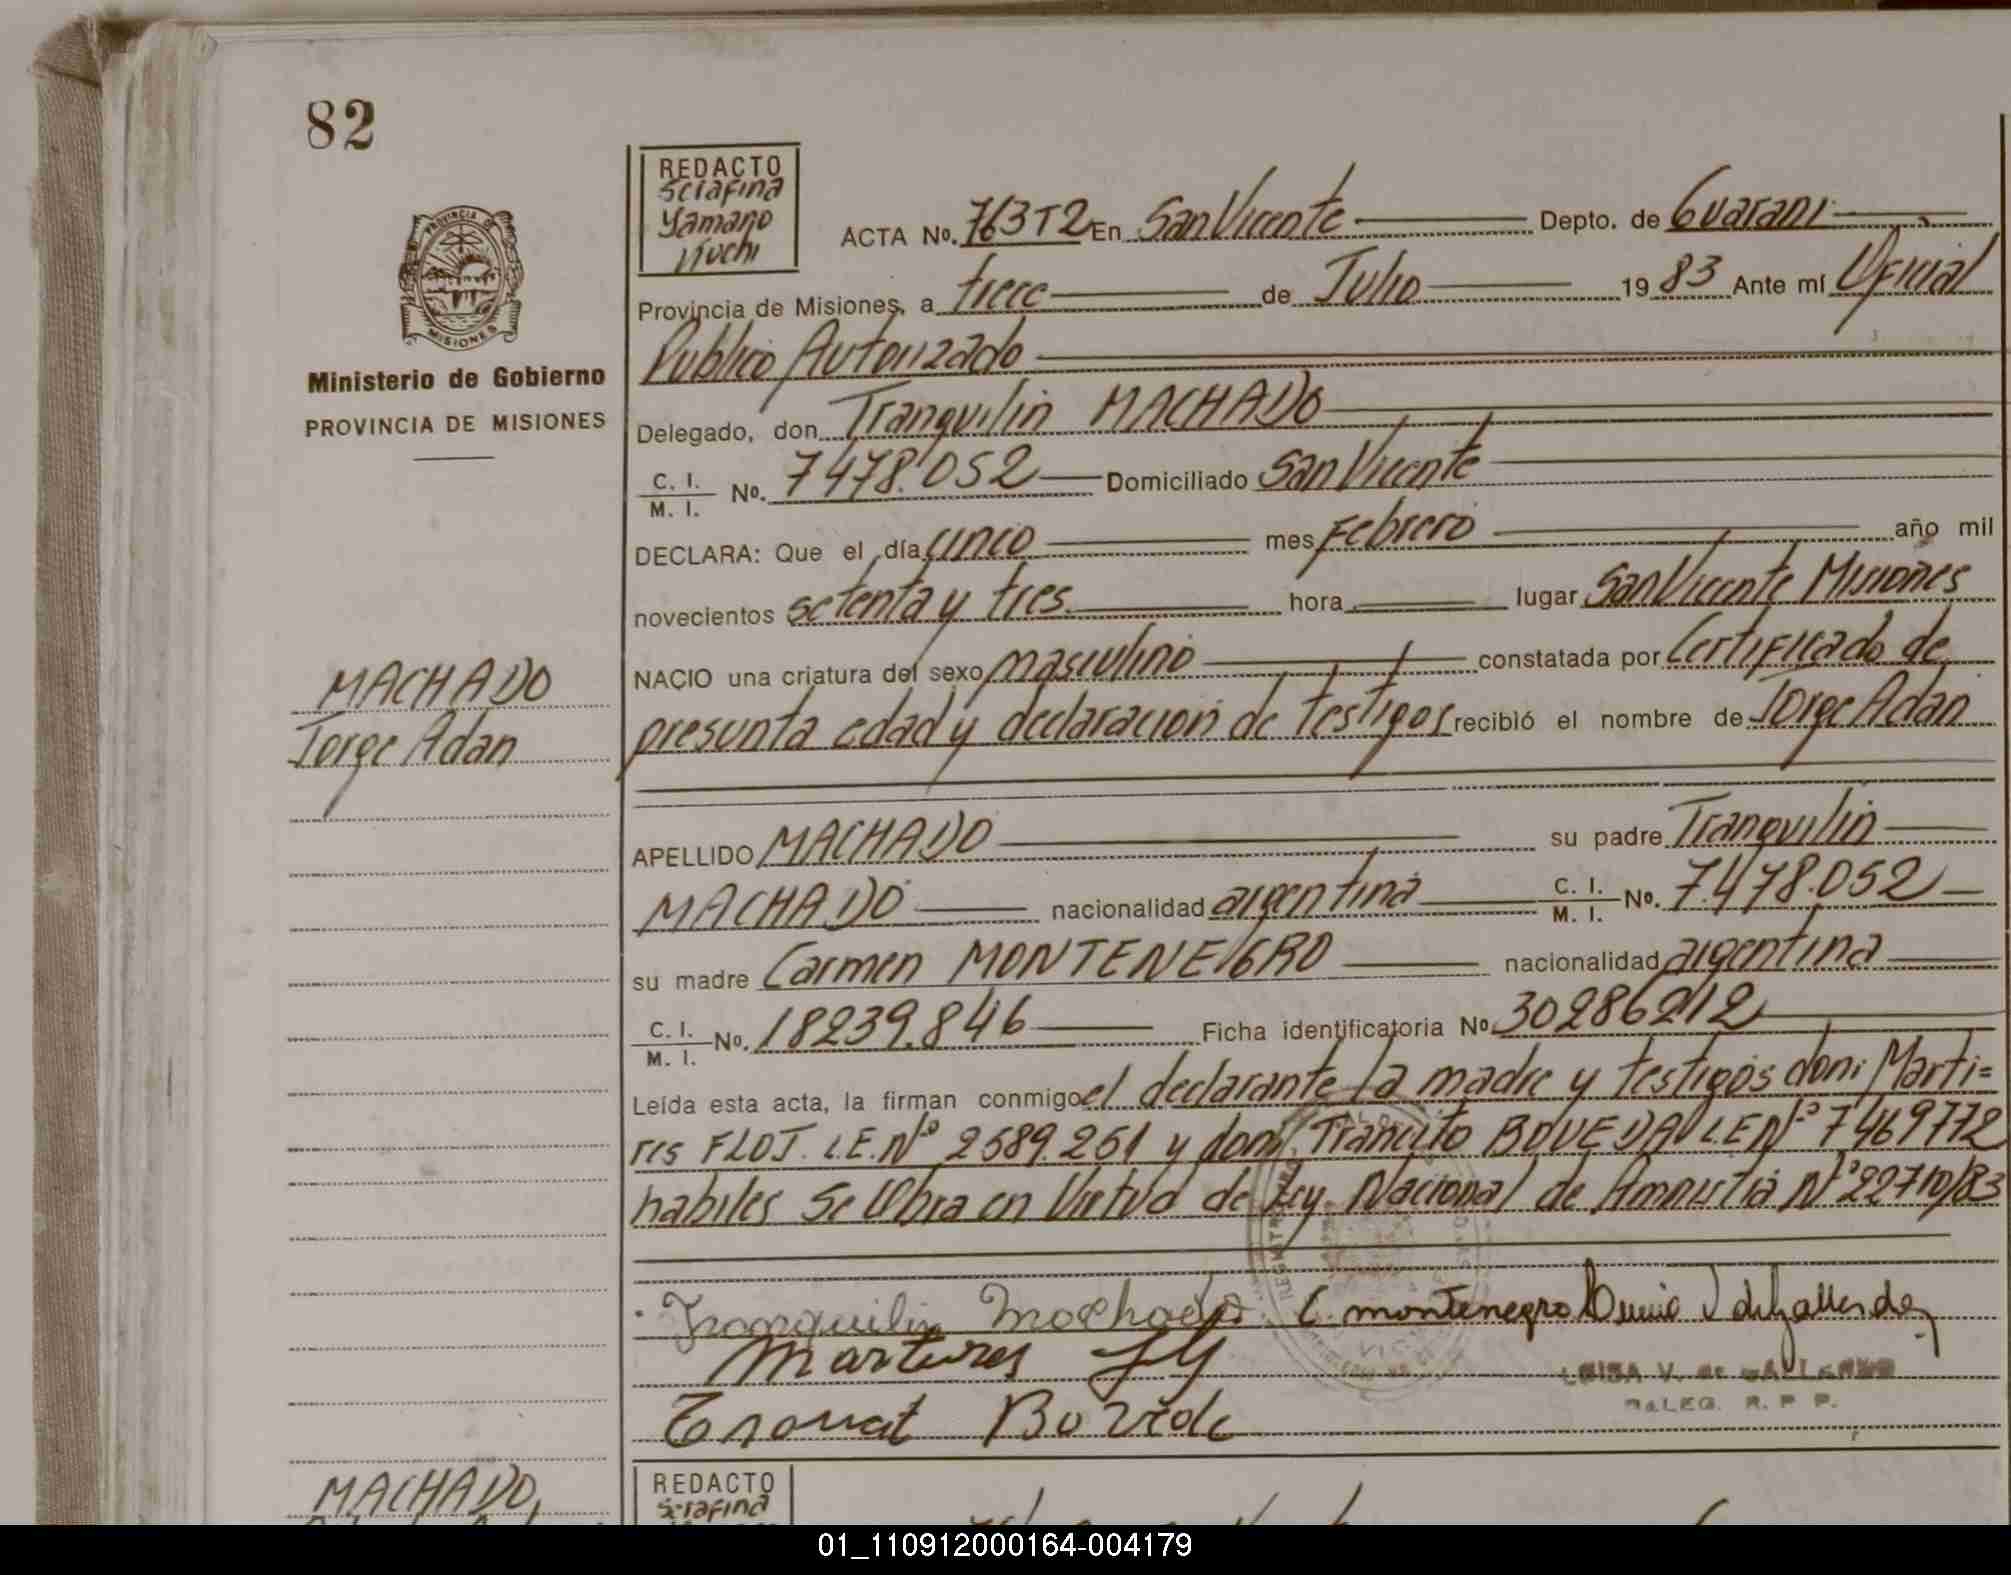 82
REDACTO
Serafina
Yamano
Kiuchi
PROVINCIA DE
MISIONES
Ministerio de Gobierno
PROVINCIA DE MISIONES
ACTA No. 763T2 En San Vicente Depto. de Guarani
Provincia de Misiones, a trece de Julio 1983 Ante mí Oficial
Publico Autorizado
Delegado, don Tranquilin MACHADO
C. I. / M. I. No. 7478.052 Domiciliado San Vicente
DECLARA: Que el día cinco mes Febrero año mil
novecientos setenta y tres hora lugar San Vicente Misiones
NACIO una criatura del sexo masculino constatada por Certificado de
presunta edad y declaracion de testigos recibió el nombre de Jorge Adan
MACHADO
Jorge Adan
APELLIDO MACHADO su padre Tranquilin
MACHADO nacionalidad argentina C. I. / M. I. No. 7.478.052
su madre Carmen MONTENEGRO nacionalidad argentina
C. I. / M. I. No. 18239.846 Ficha identificatoria No. 30286212
Leída esta acta, la firman conmigo el declarante la madre y testigos don: Marti=
res FLOT. L.E.Nº 2589.251 y don Trancito BOVEDA L.E Nº 7469772
habiles Se Obra en Virtud de Ley Nacional de Amnistia Nº 22710/83
Tranquilin Machado C. montenegro
Martires
Bovede
LUISA V. de GALLARDO
DELEG. R. P. P.
MACHADO,
REDACTO
Serafina
01_110912000164-004179